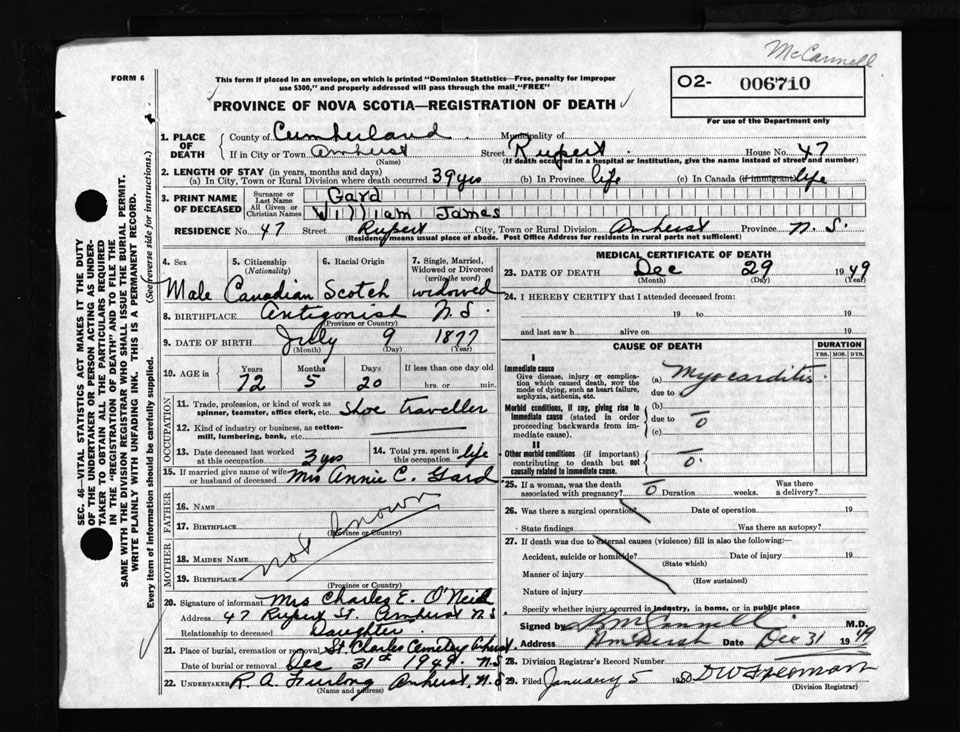 McCannell
FORM 6
This form if placed in an envelope, on which is printed "Dominion Statistics—Free, penalty for improper
use $300," and properly addressed will pass through the mail, "FREE"
PROVINCE OF NOVA SCOTIA—REGISTRATION OF DEATH
O2- 006710
For use of the Department only
1. PLACE OF DEATH
County of Cumberland Municipality of
If in City or Town Amherst Street Rupert House No. 47
(Name) (If death occurred in a hospital or institution, give the name instead of street and number)
2. LENGTH OF STAY (in years, months and days)
(a) In City, Town or Rural Division where death occurred 39 yrs (b) In Province life (c) In Canada (if immigrant) life
3. PRINT NAME OF DECEASED
Surname or Last Name Gard
All Given or Christian Names William James
RESIDENCE No. 47 Street Rupert City, Town or Rural Division Amherst Province N. S.
(Residence means usual place of abode. Post Office Address for residents in rural parts not sufficient)
4. Sex 5. Citizenship (Nationality) 6. Racial Origin 7. Single, Married, Widowed or Divorced (write the word)
Male Canadian Scotch widowed
8. BIRTHPLACE Antigonish N S.
(Province or Country)
9. DATE OF BIRTH July 9 1877
(Month) (Day) (Year)
10. AGE in Years Months Days If less than one day old
72 5 20 hrs. or min.
OCCUPATION
11. Trade, profession, or kind of work as
spinner, teamster, office clerk, etc. Shoe traveller
12. Kind of industry or business, as cotton-
mill, lumbering, bank, etc.
13. Date deceased last worked
at this occupation 3 yrs
14. Total yrs. spent in
this occupation life
15. If married give name of wife
or husband of deceased Mrs Annie C. Gard
FATHER
16. Name
17. Birthplace
(Province or Country)
not known
MOTHER
18. Maiden Name
19. Birthplace
(Province or Country)
20. Signature of informant Mrs Charles E. O'Neid
Address 47 Rupert St. Amherst N S
Relationship to deceased Daughter
21. Place of burial, cremation or removal St. Charles Cemetery Amherst
Date of burial or removal Dec 31st 1949. N.S
22. Undertaker R. A. Furlong Amherst, N. S
(Name and address)
MEDICAL CERTIFICATE OF DEATH
23. DATE OF DEATH Dec 29 1949
(Month) (Day) (Year)
24. I HEREBY CERTIFY that I attended deceased from:
19 to 19
and last saw h alive on 19
CAUSE OF DEATH
DURATION
YRS. MOS. DYS.
I
Immediate cause
Give disease, injury or compli-
cation which caused death, NOT the
mode of dying, such as heart failure,
asphyxia, asthenia, etc.
(a) Myocarditis
due to
Morbid conditions, if any, giving rise to
immediate cause (stated in order
proceeding backwards from im-
mediate cause).
(b)
due to 0
(c)
II
Other morbid conditions (if important)
contributing to death but not
causally related to immediate cause.
0
25. If a woman, was the death
associated with pregnancy? 0 Duration weeks. Was there
a delivery?
26. Was there a surgical operation? Date of operation 19
State findings Was there an autopsy?
27. If death was due to external causes (violence) fill in also the following:—
Accident, suicide or homicide? Date of injury 19
(State which)
Manner of injury
(How sustained)
Nature of injury
Specify whether injury occurred in industry, in home, or in public place
Signed by M.D.
Address Amherst Date Dec 31 1949
28. Division Registrar's Record Number
29. Filed January 5 1950
(Division Registrar)
SEC. 46—VITAL STATISTICS ACT MAKES IT THE DUTY
OF THE UNDERTAKER OR PERSON ACTING AS UNDER-
TAKER TO OBTAIN ALL THE PARTICULARS REQUIRED
IN THE "REGISTRATION OF DEATH" AND TO FILE THE
SAME WITH THE DIVISION REGISTRAR WHO SHALL ISSUE THE BURIAL PERMIT.
WRITE PLAINLY WITH UNFADING INK. THIS IS A PERMANENT RECORD.
Every item of information should be carefully supplied. (See reverse side for instructions.)